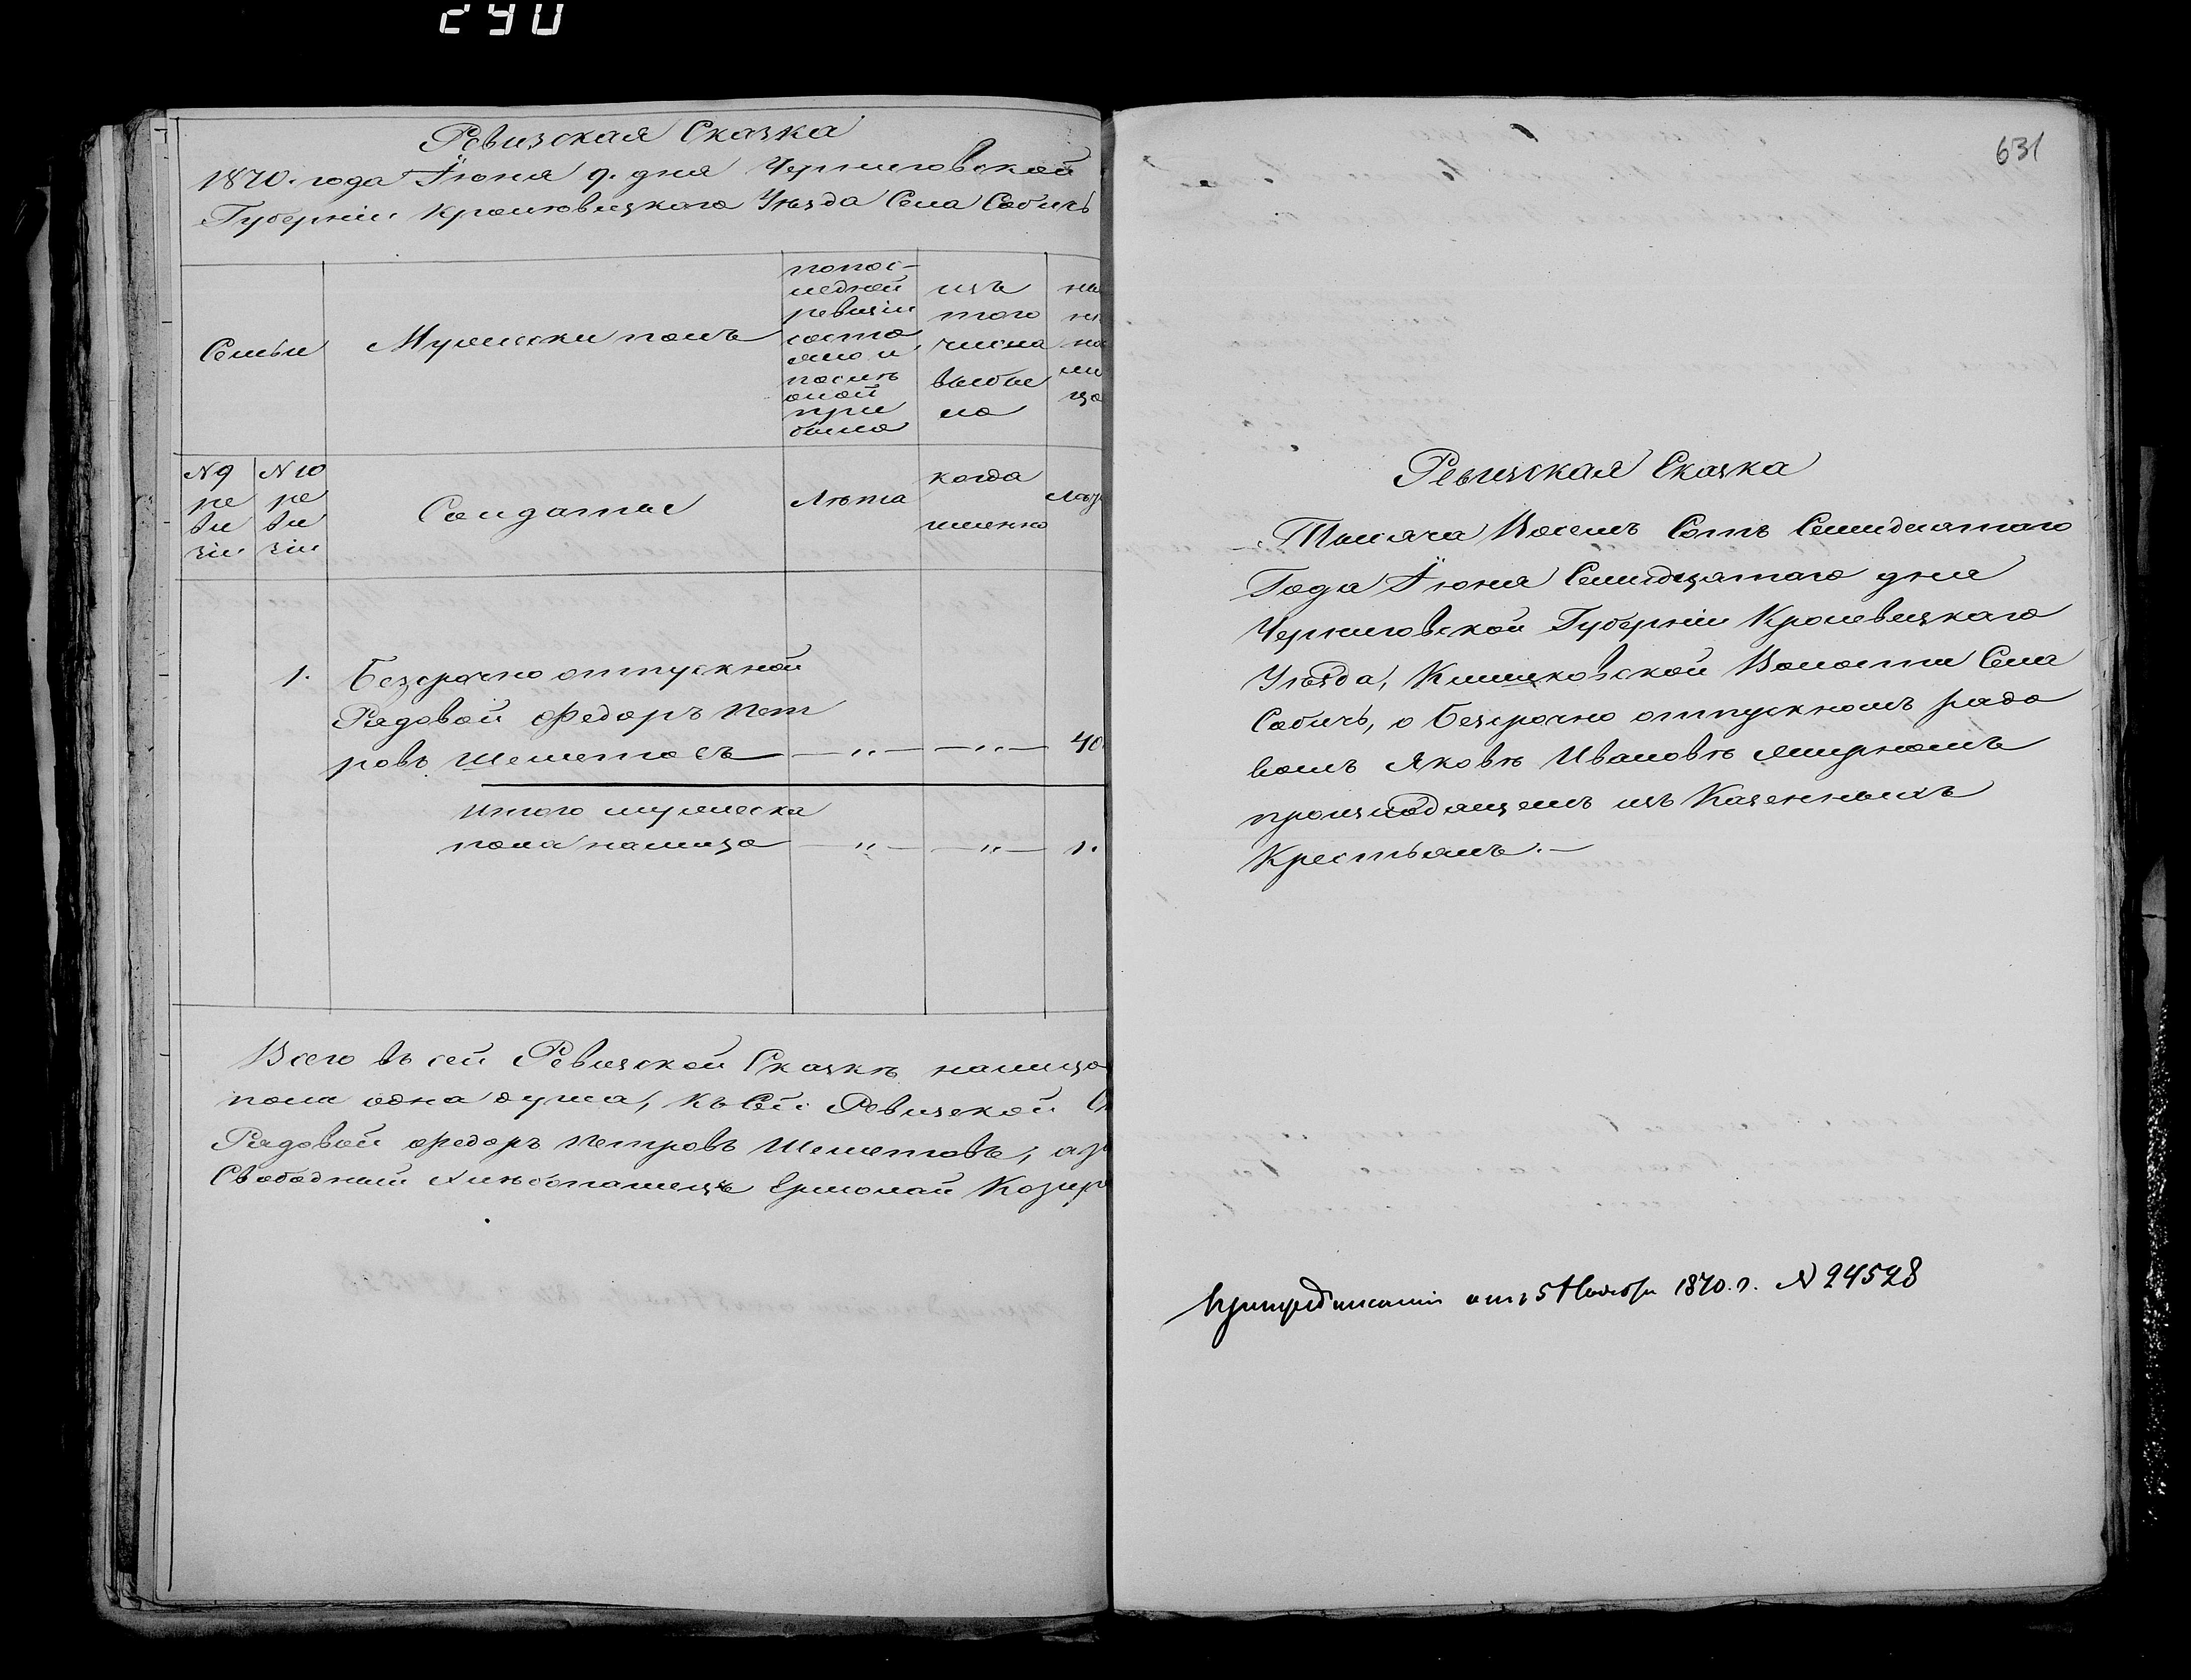 290
Ревизская Сказка
1870. года Іюня 9. дня Черниговской
Губерніи Кролювецкого Уѣзда Села Собичъ
Семьи
Мужески полъ
попос-
ледней
ревизіи
состо
яло и
послѣ
оной
при
было
изъ
того
числа
выбы
ло
N 9
ре
ви
зіи
N 10
ре
ви
зіи
Солдаты
Лѣта
когда
именно
1. Безсрочно отпускной
Рядовой Федоръ Пет
ровъ Шеметовъ — „ — — „ — 40
Итого мужеска
пола налицо — „ — — „ — 1.
Всего въ сей Ревизской Сказкѣ налицо
пола одна душа, къ Сей Ревизской
Рядовой Федоръ Петровъ Шеметовъ, а
Свободный хлѣбопашецъ Ермолай
631
Ревизская Сказка
Тысяча Восемъ Сотъ Семидесятаго
Года Іюня Семидцятого дня
Черниговской Губерніи Кролевецкаго
Уѣзда, Волости Села
Собичъ, о безсрочно отпускномъ рядо
вомъ Яковѣ Ивановѣ
произходящемъ изъ Казенныхъ
Крестьянъ. —
При предписаніи отъ 5 Ноября 1870. г. N 24528